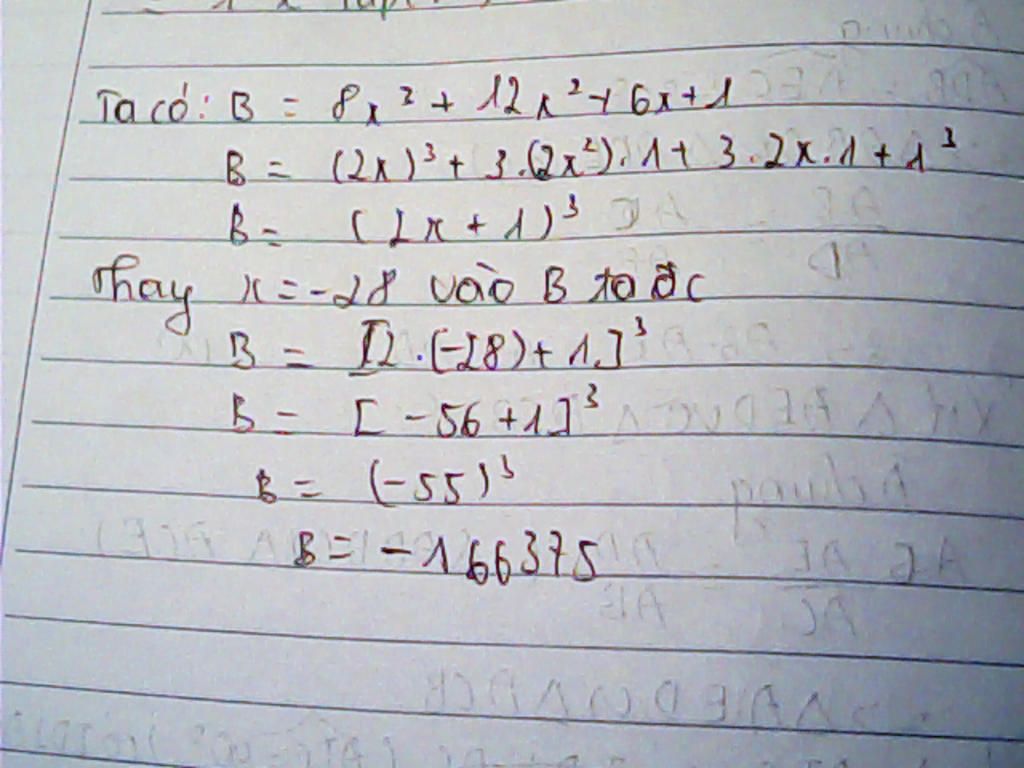 Ta có: B = 8x³ + 12x² + 6x + 1
B = (2x)³ + 3.(2x²).1 + 3.2x.1 + 1³
B = (2x + 1)³
Thay x = -28 vào B ta đc
B = [2.(-28) + 1]³
B = [-56 + 1]³
B = (-55)³
B = -166375